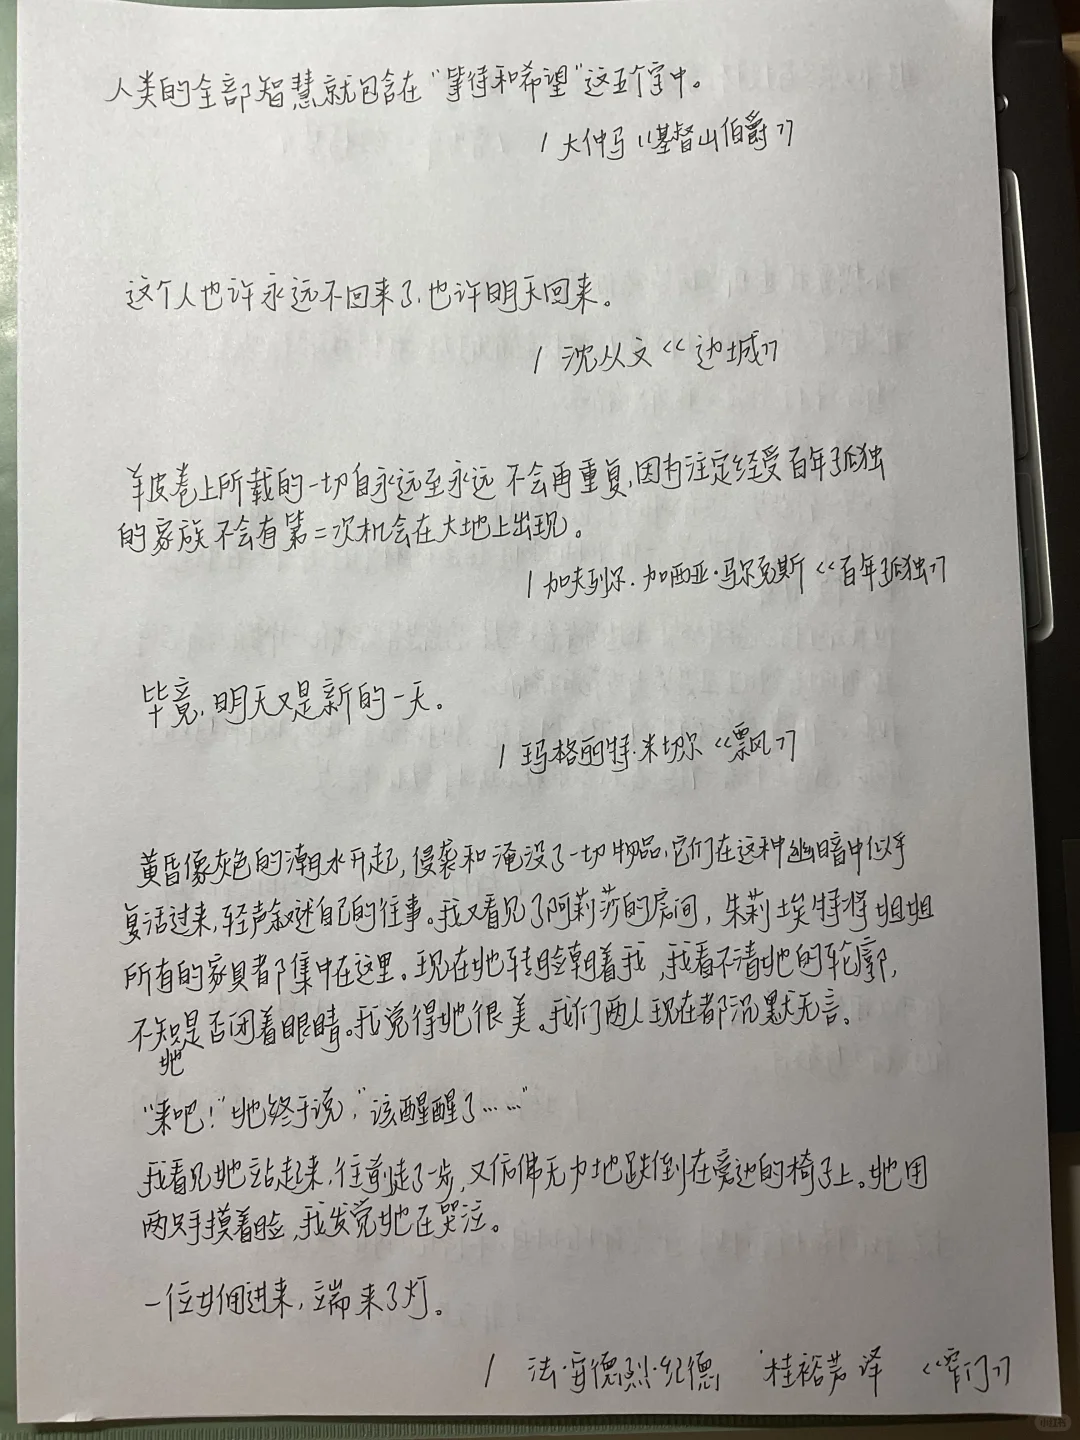 人类的全部智慧就包含在“等待和希望”这五个字中。
/ 大仲马《基督山伯爵》
这个人也许永远不回来了,也许明天回来。
/ 沈从文《边城》
羊皮卷上所载的一切自永远至永远不会再重复,因为注定经受百年孤独
的家族不会有第二次机会在大地上出现。
/ 加夫列尔·加西亚·马尔克斯《百年孤独》
毕竟,明天又是新的一天。
/ 玛格丽特·米切尔《飘》
黄昏像灰色的潮水升起,侵袭和淹没了一切物品,它们在这种幽暗中似乎
复活过来,轻声叙述自己的往事。我又看见了阿莉莎的房间,朱莉埃特将姐姐
所有的家具都集中在这里。现在她转脸朝着我,我看不清她的轮廓,
不知是否闭着眼睛。我觉得她很美。我们两人现在都沉默无言。
她
“来吧!”她终于说,“该醒醒了……”
我看见她站起来,往前走了一步,又仿佛无力地跌倒在旁边的椅子上。她用
两只手摸着脸,我发觉她在哭泣。
一位女佣进来,端来了灯。
/ 法·安德烈·纪德 桂裕芳 译 《窄门》
小红书